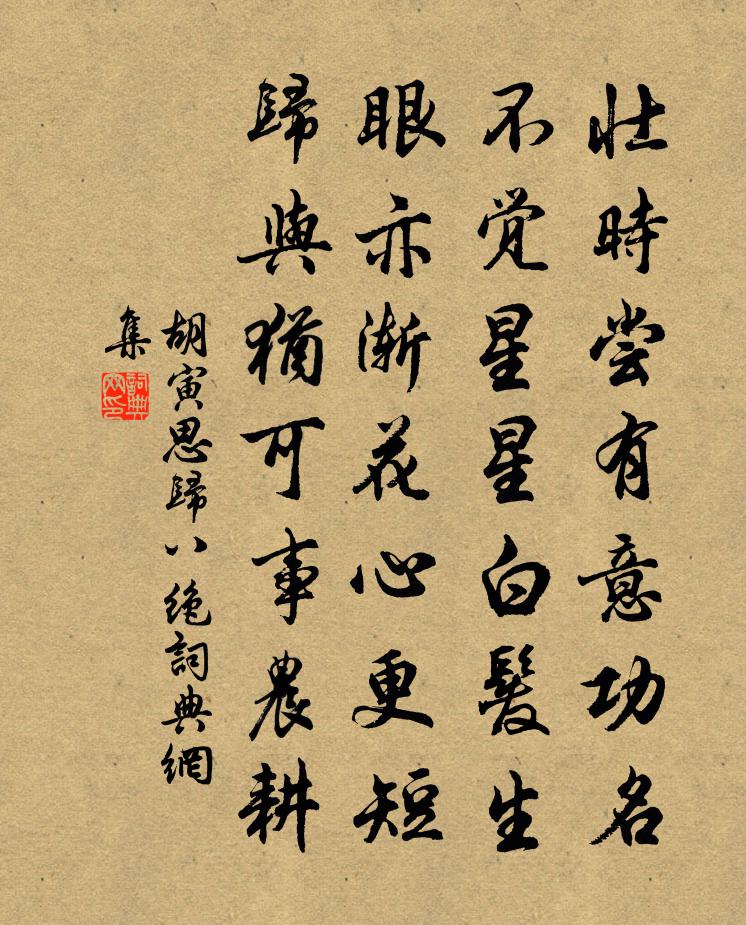 壮時尝有意功名
不覚星星白髮生
眼亦漸花心更短
歸與猶可事農耕
胡寅思歸八絶詞典網
集
詞典網印